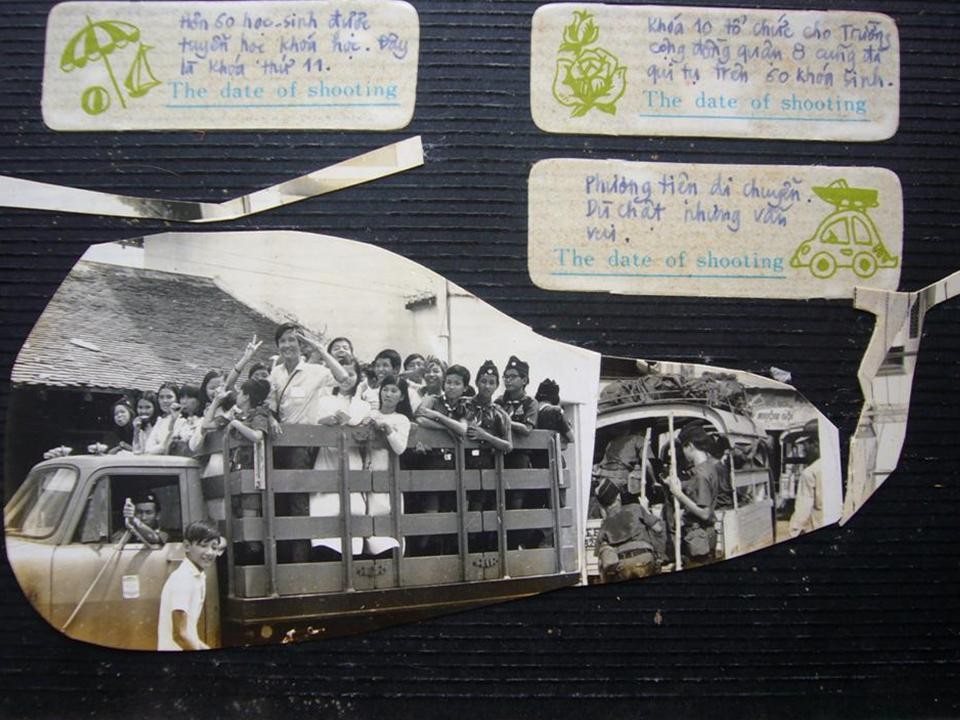 Hơn 60 học-sinh được
tuyển học khóa học. Đây
là khóa thứ 11.
The date of shooting
Khóa 10 tổ chức cho Trường
cộng đồng quận 8 cũng đã
qui tụ trên 60 khóa sinh.
The date of shooting
Phương tiện di chuyển.
Dù chật nhưng vẫn
vui.
The date of shooting